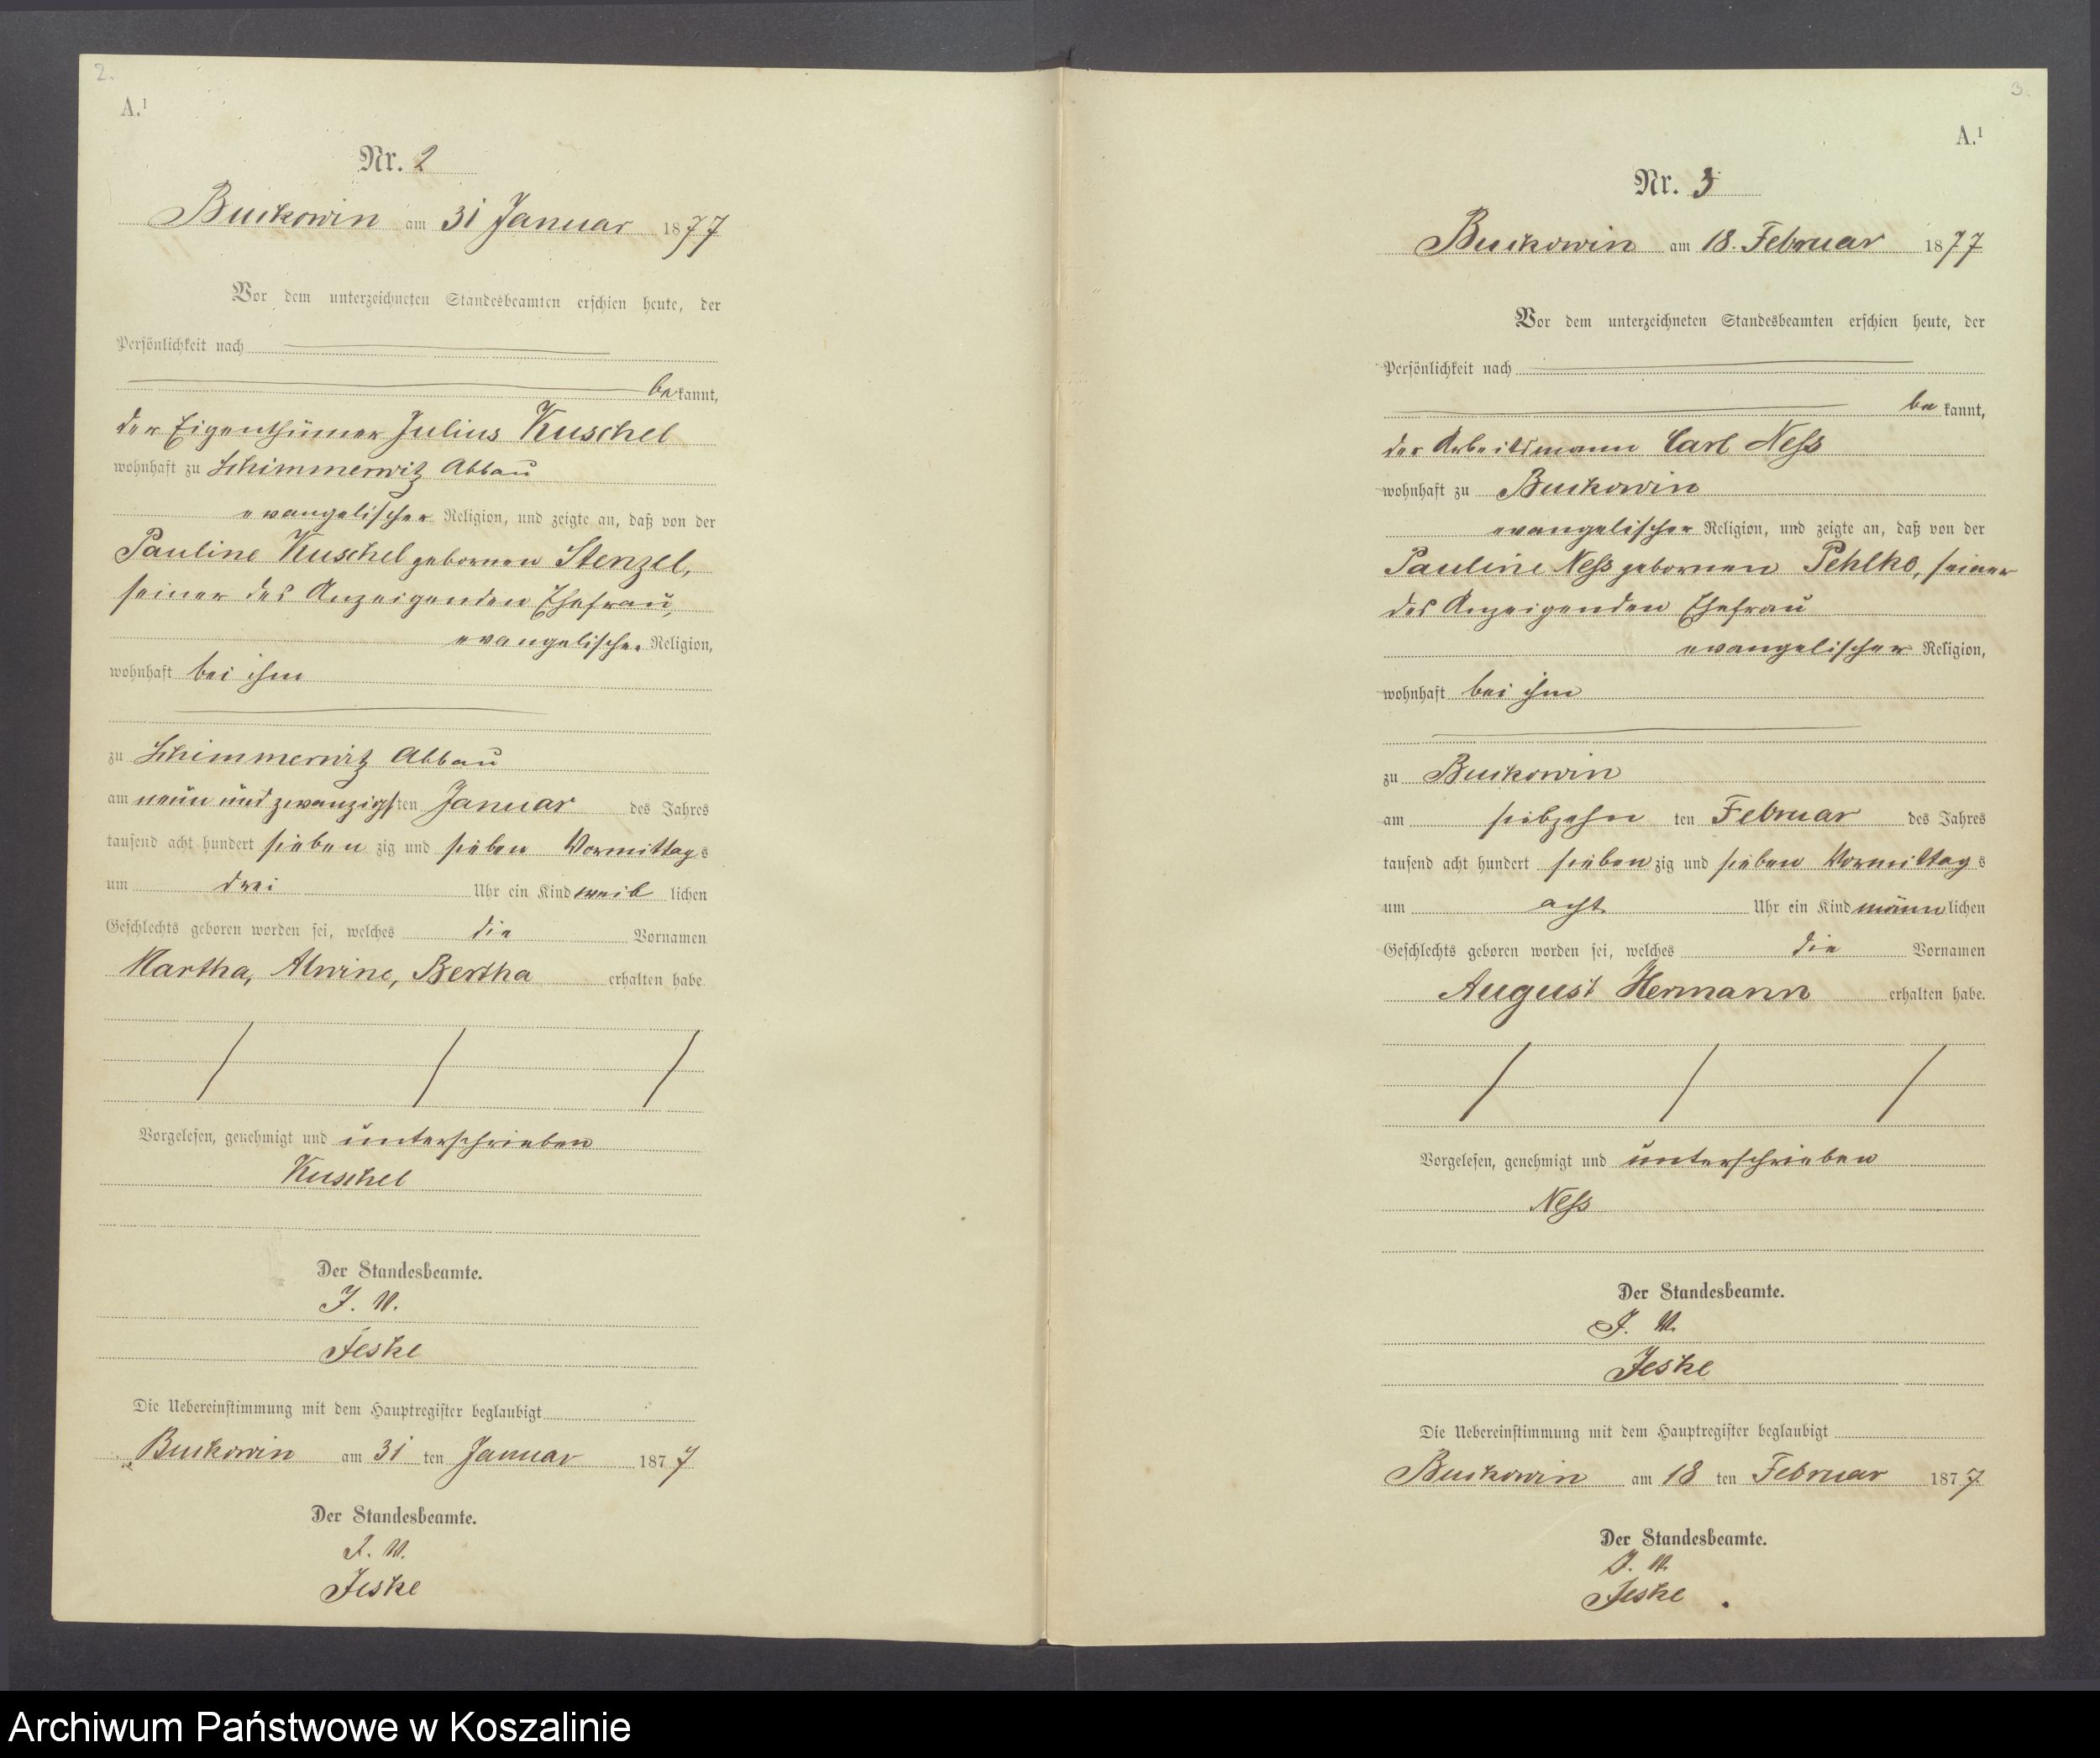 2.
A.¹
Nr. 2
Buckowin am 31 Januar 1877
Vor dem unterzeichneten Standesbeamten erschien heute, der
Persönlichkeit nach
bekannt,
der Eigenthümer Julius Kuschel
wohnhaft zu Schimmerwitz Abbau
evangelischer Religion, und zeigte an, daß von der
Pauline Kuschel gebornen Stenzel,
seiner des Anzeigenden Ehefrau,
evangelischer Religion,
wohnhaft bei ihm
zu Schimmerwitz Abbau
am neun und zwanzigsten Januar des Jahres
tausend acht hundert sieben zig und sieben Vormittags
um drei Uhr ein Kind weib lichen
Geschlechts geboren worden sei, welches die Vornamen
Martha, Alwine, Bertha erhalten habe.
Vorgelesen, genehmigt und unterschrieben
Kuschel
Der Standesbeamte.
J. V.
Jeske
Die Uebereinstimmung mit dem Hauptregister beglaubigt
Buckowin am 31 ten Januar 1877
Der Standesbeamte.
J. V.
Jeske
3.
A.¹
Nr. 3
Buckowin am 18. Februar 1877
Vor dem unterzeichneten Standesbeamten erschien heute, der
Persönlichkeit nach
be kannt,
der Arbeitsmann Carl Neß
wohnhaft zu Buckowin
evangelischer Religion, und zeigte an, daß von der
Pauline Neß gebornen Pehlke, seiner
des Anzeigenden Ehefrau
evangelischer Religion,
wohnhaft bei ihm
zu Buckowin
am siebzehn ten Februar des Jahres
tausend acht hundert sieben zig und sieben Vormittag s
um acht Uhr ein Kind männlichen
Geschlechts geboren worden sei, welches die Vornamen
August Hermann erhalten habe.
Vorgelesen, genehmigt und unterschrieben
Neß
Der Standesbeamte.
J. V.
Jeske
Die Uebereinstimmung mit dem Hauptregister beglaubigt
Buckowin am 18 ten Februar 1877.
Der Standesbeamte.
J. V.
Jeske.
Archiwum Państwowe w Koszalinie